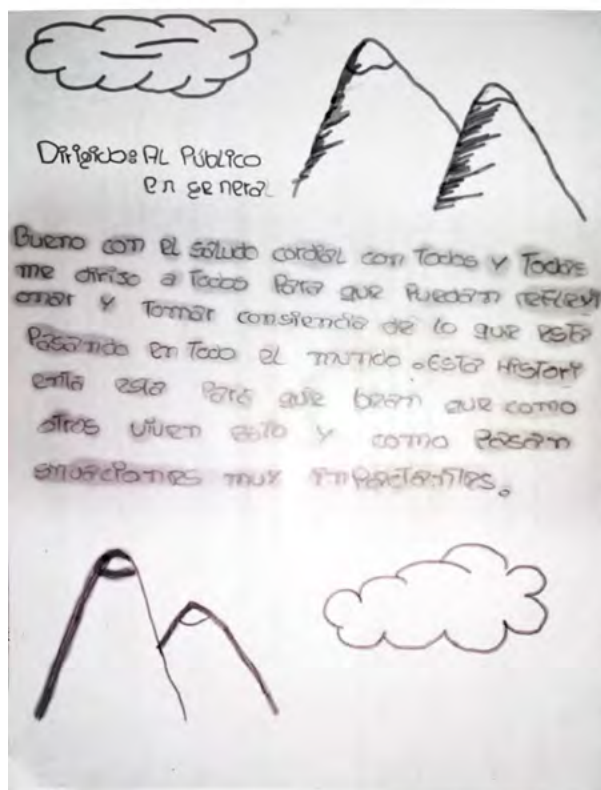 Dirigidos AL Público
en general
Bueno con el saludo cordial con Todos y Todas
me diriso a Todoo Para que Puedan reflexi
onar y Tomar consiencia de lo que esta
Pasando en Todo el mundo. esta History
enta esta Para que bean que como
otros viven esto y como Pasan
situaciones muy impactantes.